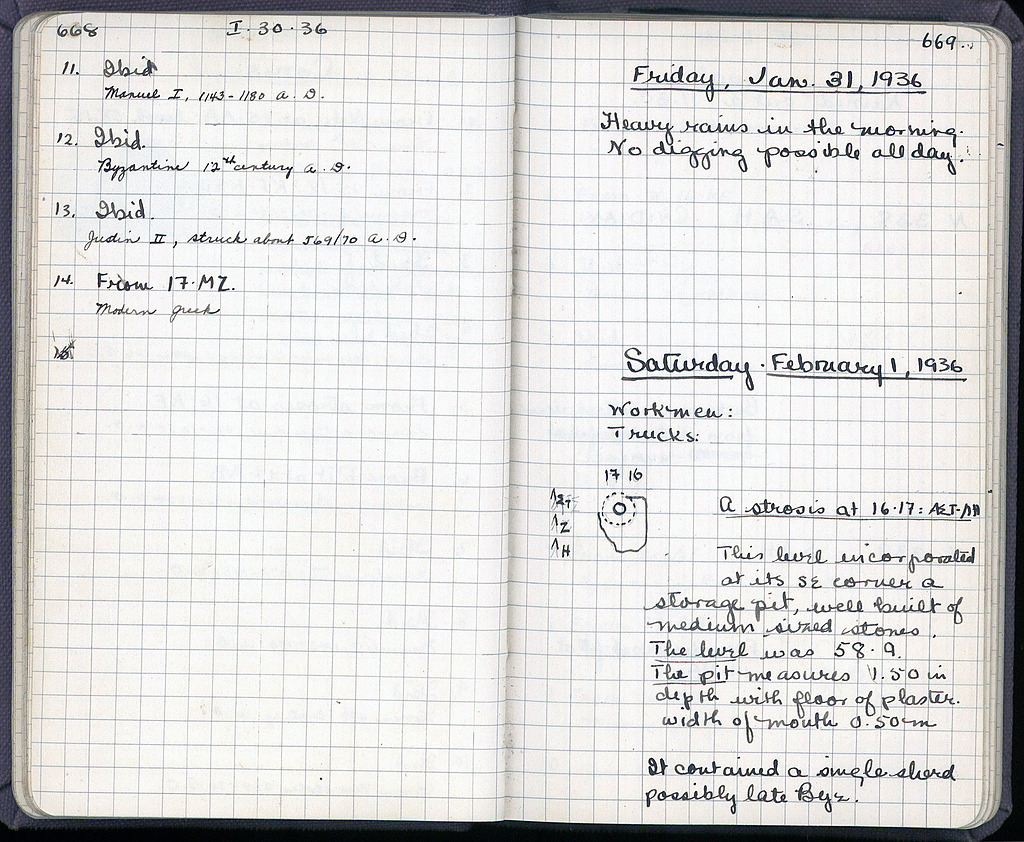 668 I·30·36
11. Ibid
Manuel I, 1143-1180 A.D.
12. Ibid.
Byzantine 12th century A.D.
13. Ibid.
Justin II, struck about 569/70 A.D.
14. From 17·MZ.
Modern Greek
669
Friday, Jan. 31, 1936
Heavy rains in the morning.
No digging possible all day.
Saturday. February 1, 1936
Workmen:
Trucks:
17 16
ΛZ
ΛH
A strosis at 16·17:
This level incorporated
at its SE corner a
storage pit, well built of
medium sized stones.
The level was 58.9.
The pit measures 1.50 in
depth with floor of plaster.
width of mouth 0.50 m
It contained a single sherd
possibly late Byz.